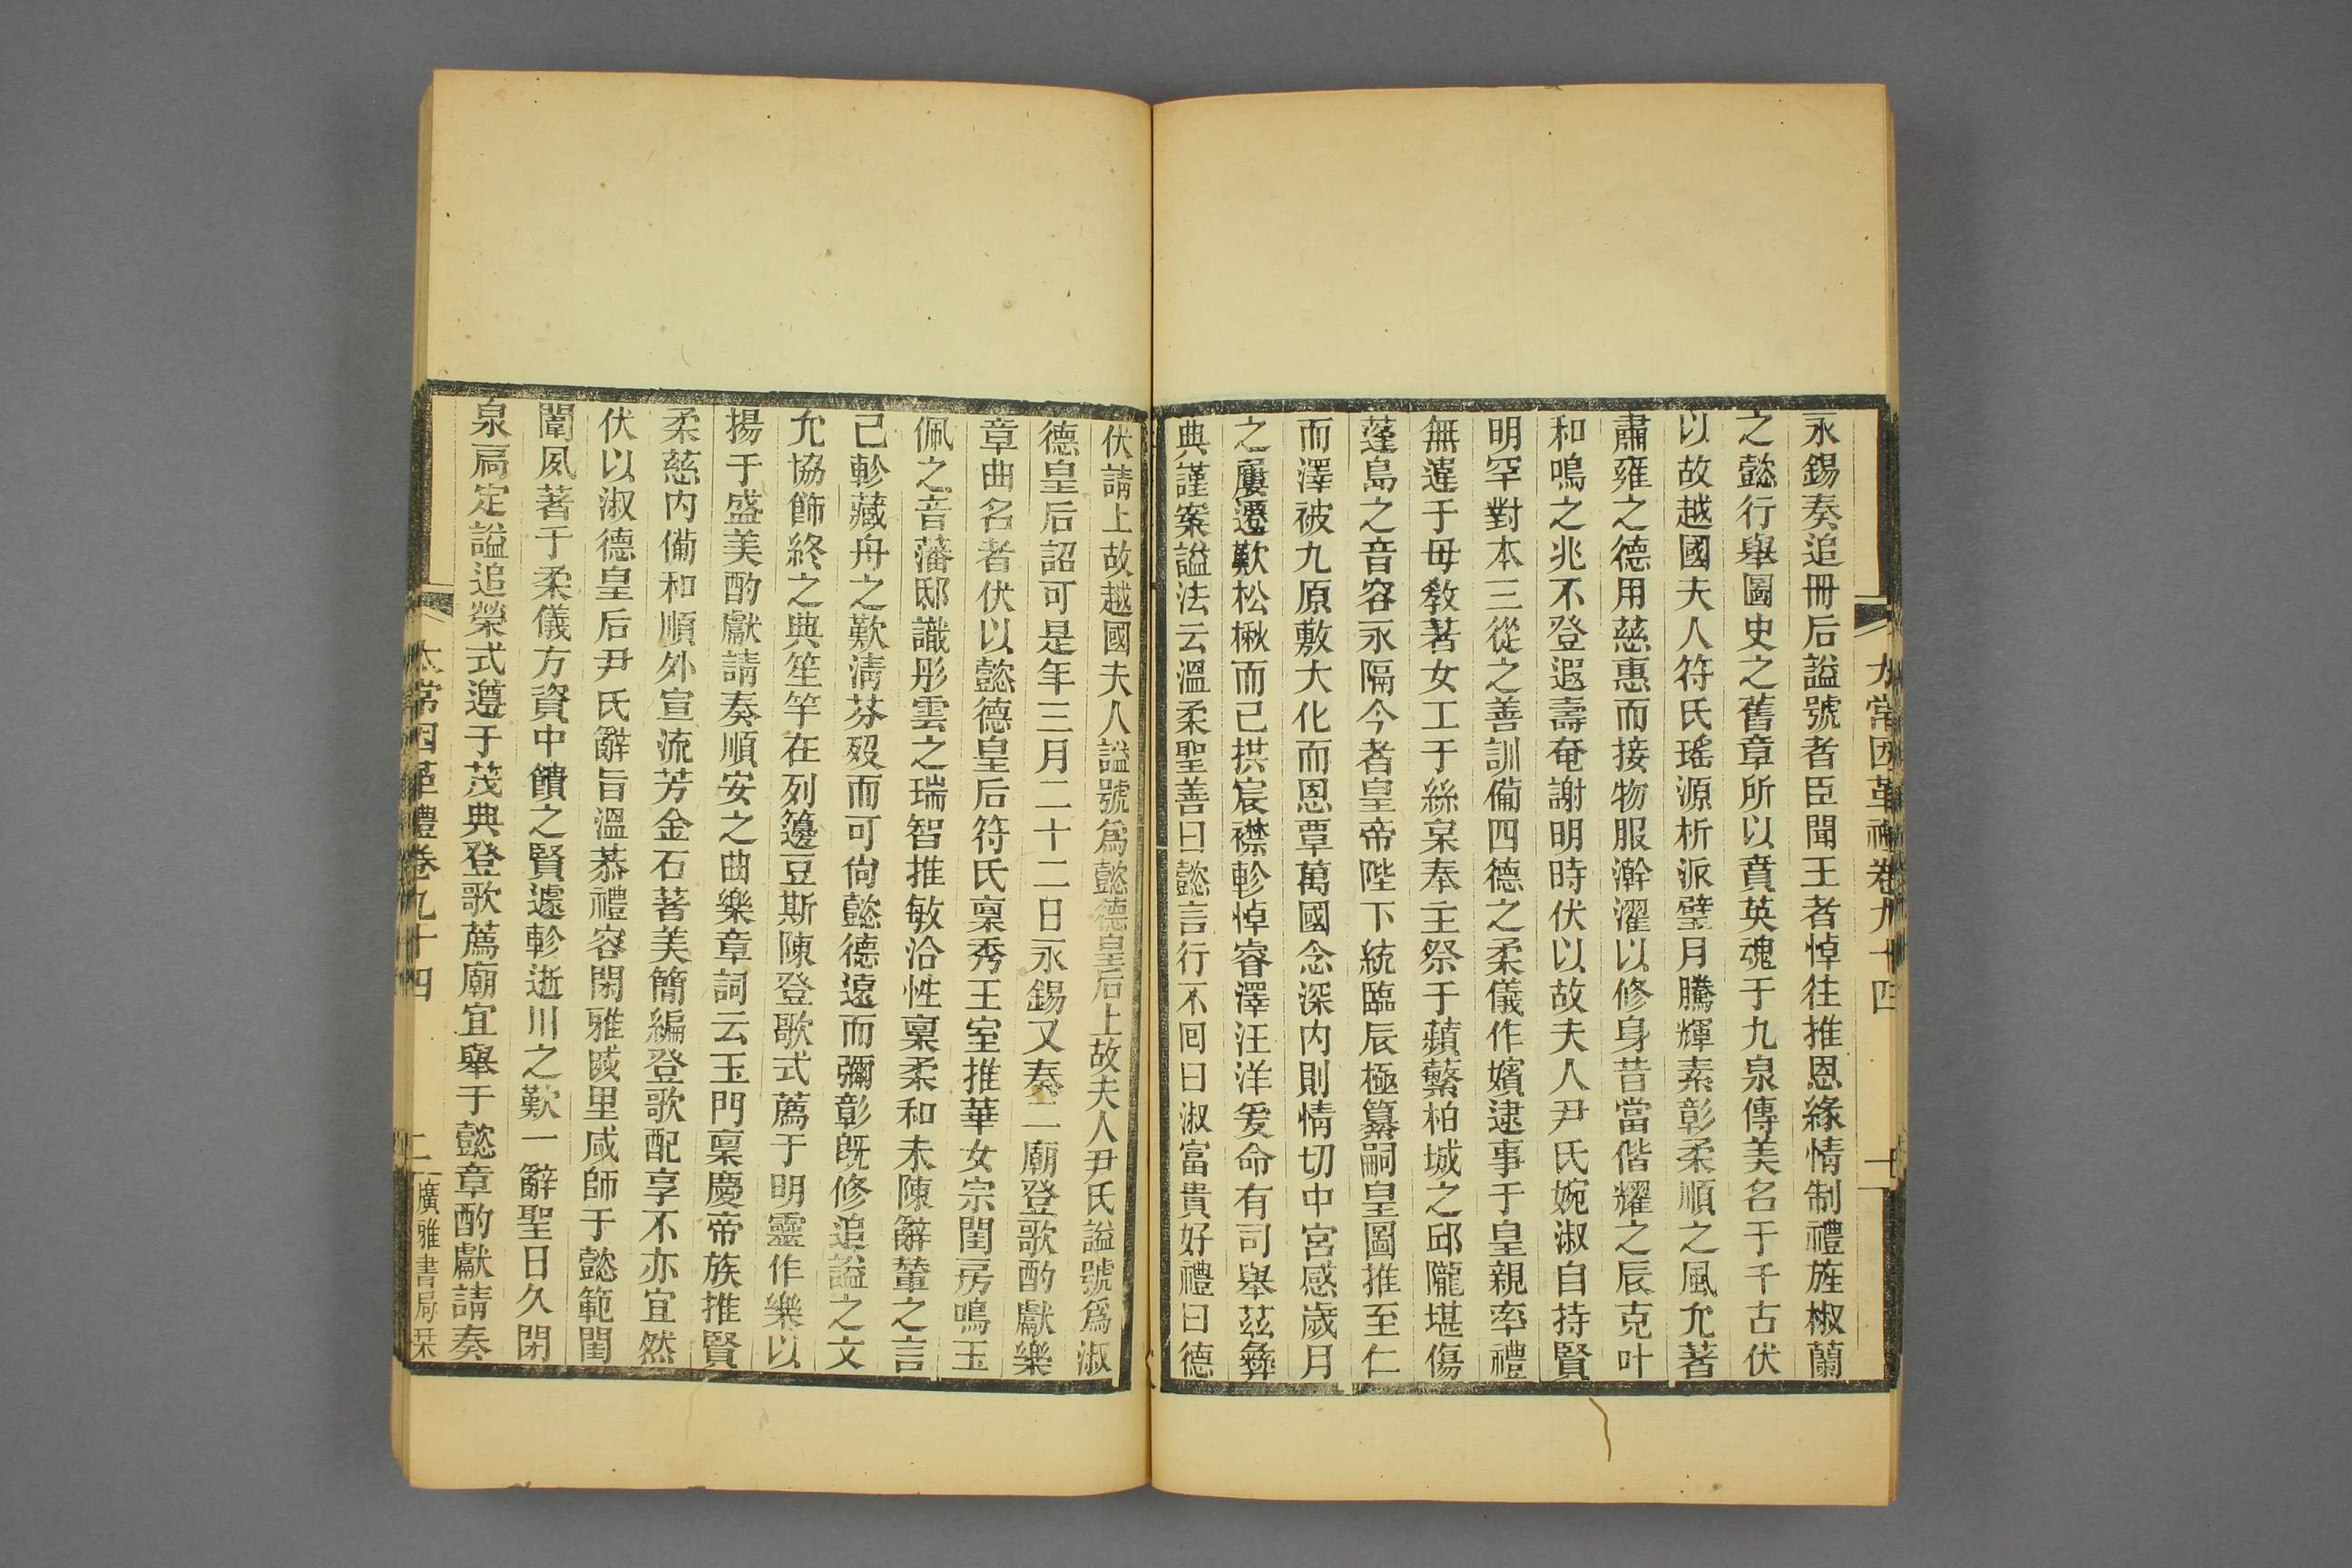 太常因革禮卷九十四
永錫奏追冊后謚號者臣聞王者悼往推恩緣情制禮旌椒蘭
之懿行舉圖史之舊章所以賁英魂于九泉傳美名于千古伏
以故越國夫人符氏瑤源析派璧月騰輝素彰柔順之風允著
肅雍之德用慈惠而接物服澣濯以修身昔當偕耀之辰克叶
和鳴之兆不登遐壽奄謝明時伏以故夫人尹氏婉淑自持賢
明罕對本三從之善訓備四德之柔儀作嬪逮事于皇親率禮
無違于毋敎著女工于絲枲奉主祭于蘋蘩柏城之邱隴堪傷
蓬島之音容永隔今者皇帝陛下統臨辰極纂嗣皇圖推至仁
而澤被九原敷大化而恩覃萬國念深内則情切中宮感歲月
之屢遷歎松楸而已拱宸襟軫悼睿澤汪洋爰命有司舉茲彝
典謹案謚法云溫柔聖善曰懿言行不囘曰淑富貴好禮曰德
伏請上故越國夫人謚號爲懿德皇后上故夫人尹氏謚號爲淑
德皇后詔可是年三月二十二日永錫又奏二廟登歌酌獻樂
章曲名者伏以懿德皇后符氏稟秀王室推華女宗閨房鳴玉
佩之音藩邸識彤雲之瑞智推敏洽性稟柔和未陳辭輦之言
已軫藏舟之歎淸芬歿而可尙懿德遠而彌彰旣修追謚之文
允協飾終之典笙竽在列籩豆斯陳登歌式薦于明靈作樂以
揚于盛美酌獻請奏順安之曲樂章詞云玉門稟慶帝族推賢
柔慈内備和順外宣流芳金石著美簡編登歌配享不亦宜然
伏以淑德皇后尹氏辭旨溫恭禮容閑雅戚里咸師于懿範閨
闈夙著于柔儀方資中饋之賢遽軫逝川之歎一辭聖日久閉
泉扃定謚追榮式遵于茂典登歌薦廟宜舉于懿章酌獻請奏
太常因革禮卷九十四 二 廣雅書局栞